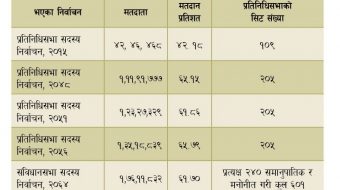 भएका निर्वाचन मतदाता मतदान प्रतिशत प्रतिनिधिसभाको सिट संख्या
प्रतिनिधिसभा सदस्य निर्वाचन, २०१५ ४२, ४६, ४६८ ४२.१८ १०९
प्रतिनिधिसभा सदस्य निर्वाचन, २०४८ १,११,९१,७७७ ६५.१५ २०५
प्रतिनिधिसभा सदस्य निर्वाचन, २०५१ १,२३,२७,३२९ ६१.८६ २०५
प्रतिनिधिसभा सदस्य निर्वाचन, २०५६ १,३५,१८,८३९ ६५.७९ २०५
संविधानसभा सदस्य निर्वाचन, २०६४ १,७६,११,८३२ ६१.७० प्रत्यक्ष २४० समानुपातिक र मनोनीत गरी कुल ६०१